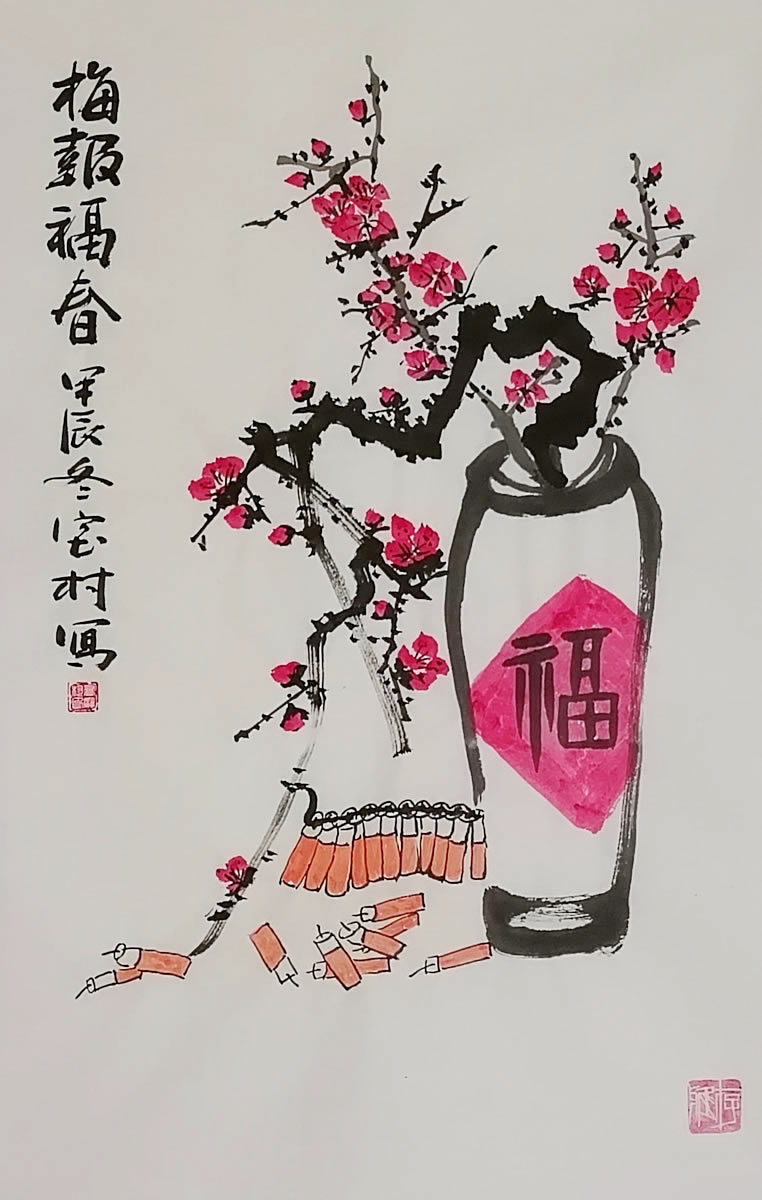 梅報福春
甲辰冬宝村寫
福